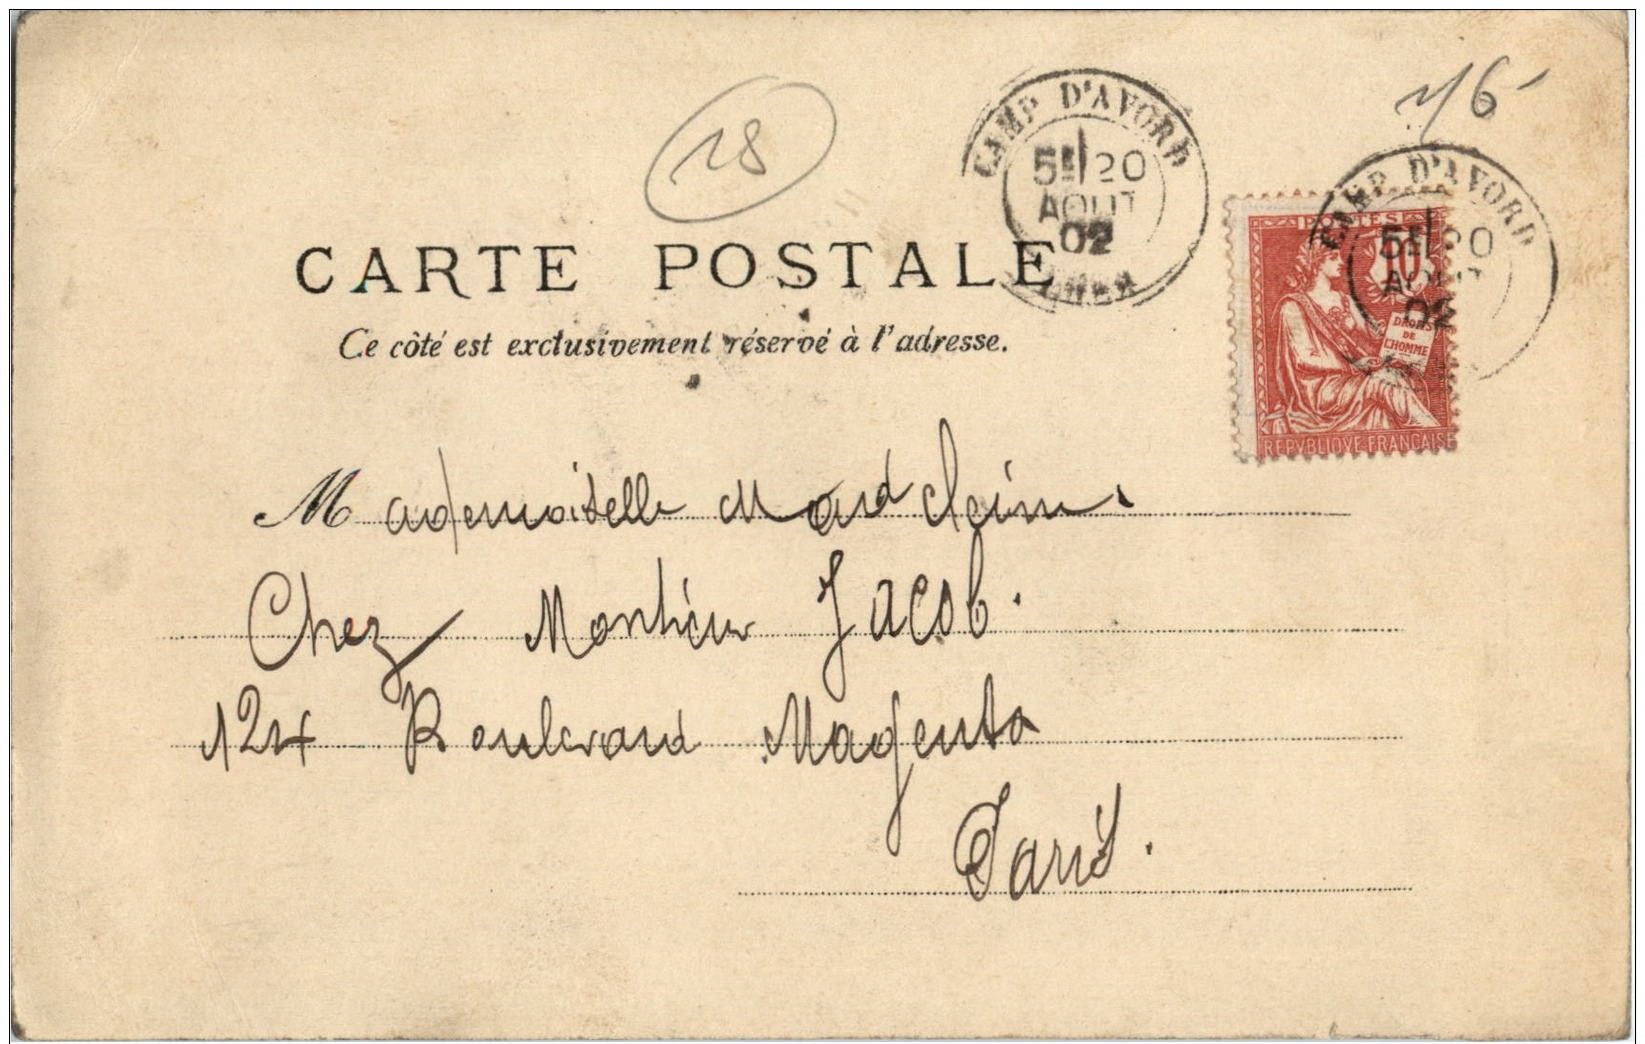 18
16
CAMP D'AVORD
5E 20
AOUT
02
CHER
CAMP D'AVORD
5E 20
AOUT
02
POSTES
10
DROITS
DE
L'HOMME
REPVBLIQVE FRANÇAISE
CARTE POSTALE
Ce côté est exclusivement réservé à l'adresse.
Mademoiselle Madeleine
Chez Monsieur Jacob.
124 Boulevard Magenta
Paris.